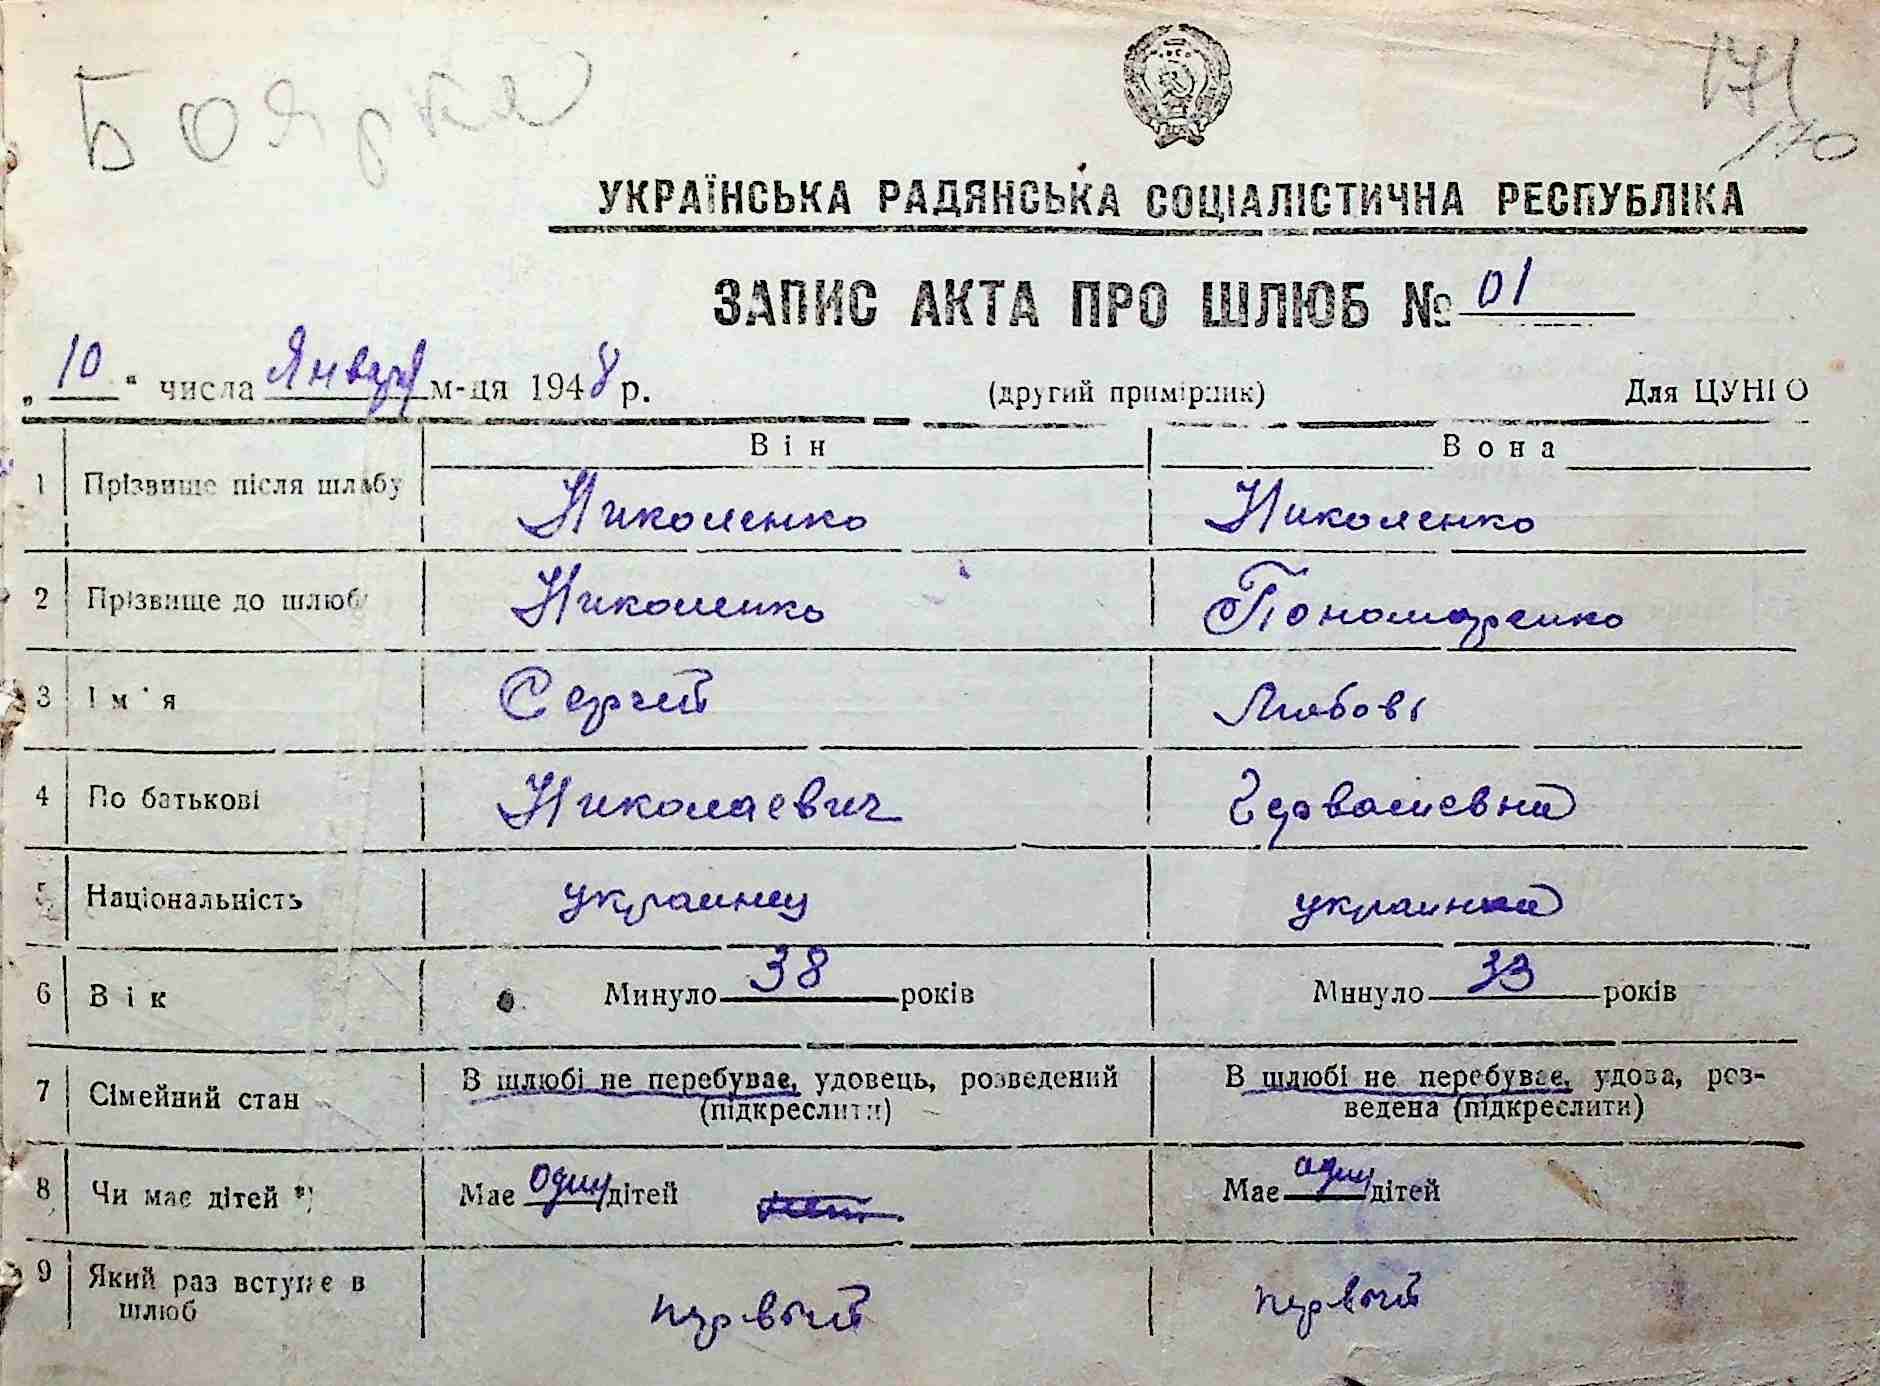 Боярка
171
170
УКРАЇНСЬКА РАДЯНСЬКА СОЦІАЛІСТИЧНА РЕСПУБЛІКА
ЗАПИС АКТА ПРО ШЛЮБ № 01
„10“ числа Января м-ця 1948 р. (другий примірник) Для ЦУНГО
Він Вона
1 Прізвище після шлюбу Николенко Николенко
2 Прізвище до шлюбу Николенко Пономаренко
3 Ім'я Сергей Любовь
4 По батькові Николаевич Гервасиевна
5 Національність украинец украинка
6 Вік Минуло 38 років Минуло 33 років
7 Сімейний стан В шлюбі не перебуває, удовець, розведений (підкреслити) В шлюбі не перебуває, удова, роз-
ведена (підкреслити)
8 Чи має дітей *) Має один дітей нет Має один дітей
9 Який раз вступає в
шлюб первый первый